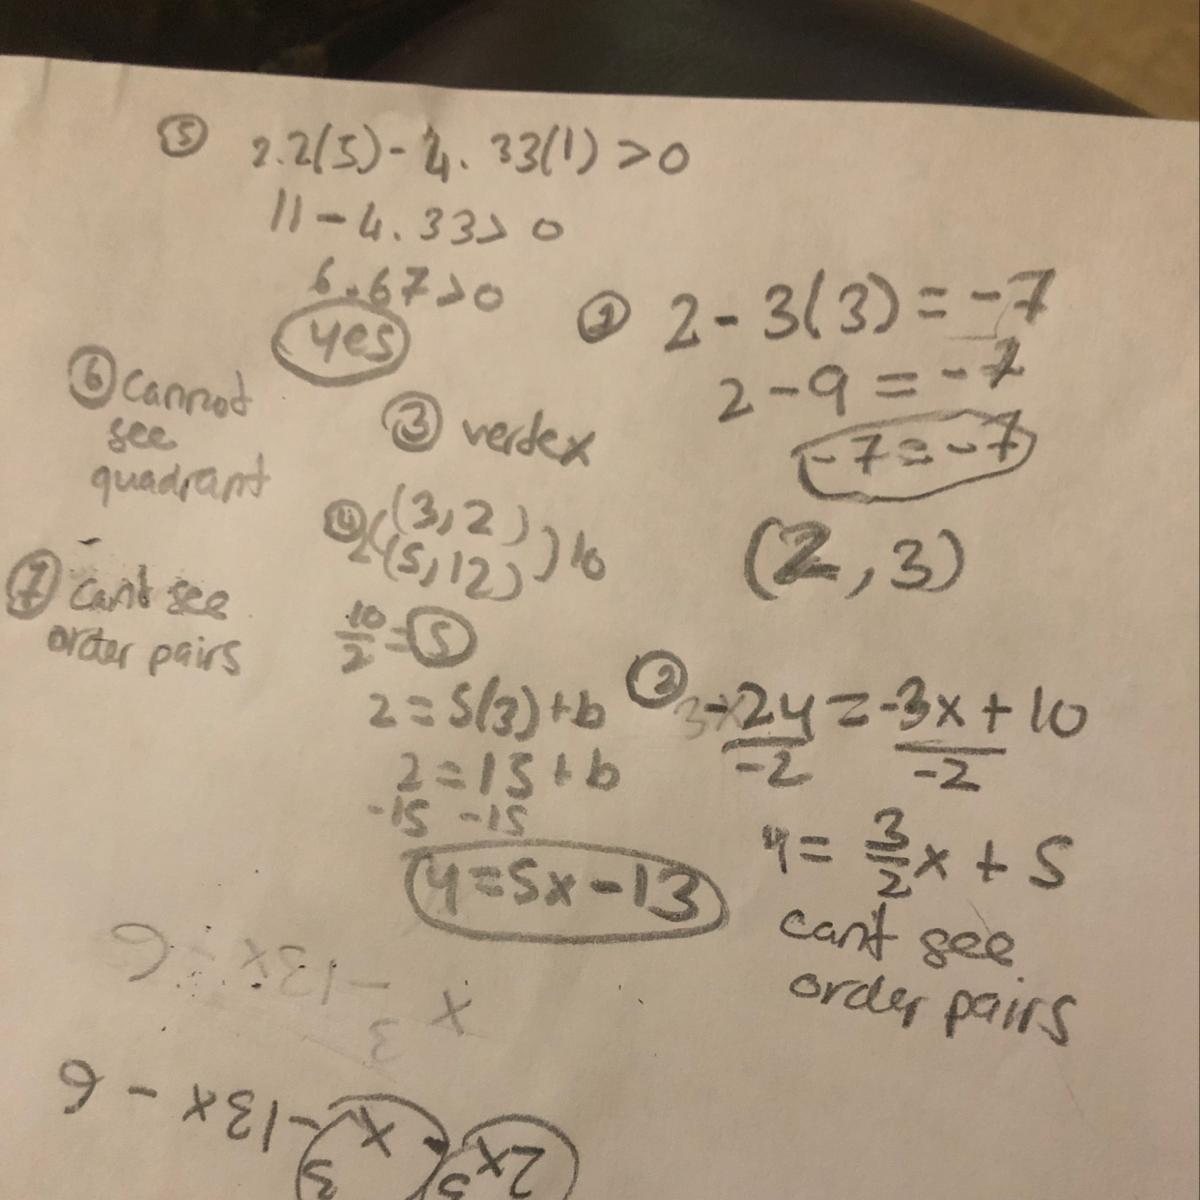 ⑤ 2.2(5) - 4.33(1) > 0
11 - 4.33 > 0
6.67 > 0
yes
① 2 - 3(3) = -7
2 - 9 = -7
-7 = -7
(2, 3)
⑥ cannot
see
quadrant
③ vertex
④ 2((3, 2)
(5, 12)) 10
10/2 = 5
2 = 5(3) + b
2 = 15 + b
-15 -15
y = 5x - 13
⑦ cant see
order pairs
② 3x -2y = -3x + 10
-2 -2
y = 3/2x + 5
cant see
order pairs
x - 13x - 6
3
2x - x - 13x - 6
5 3